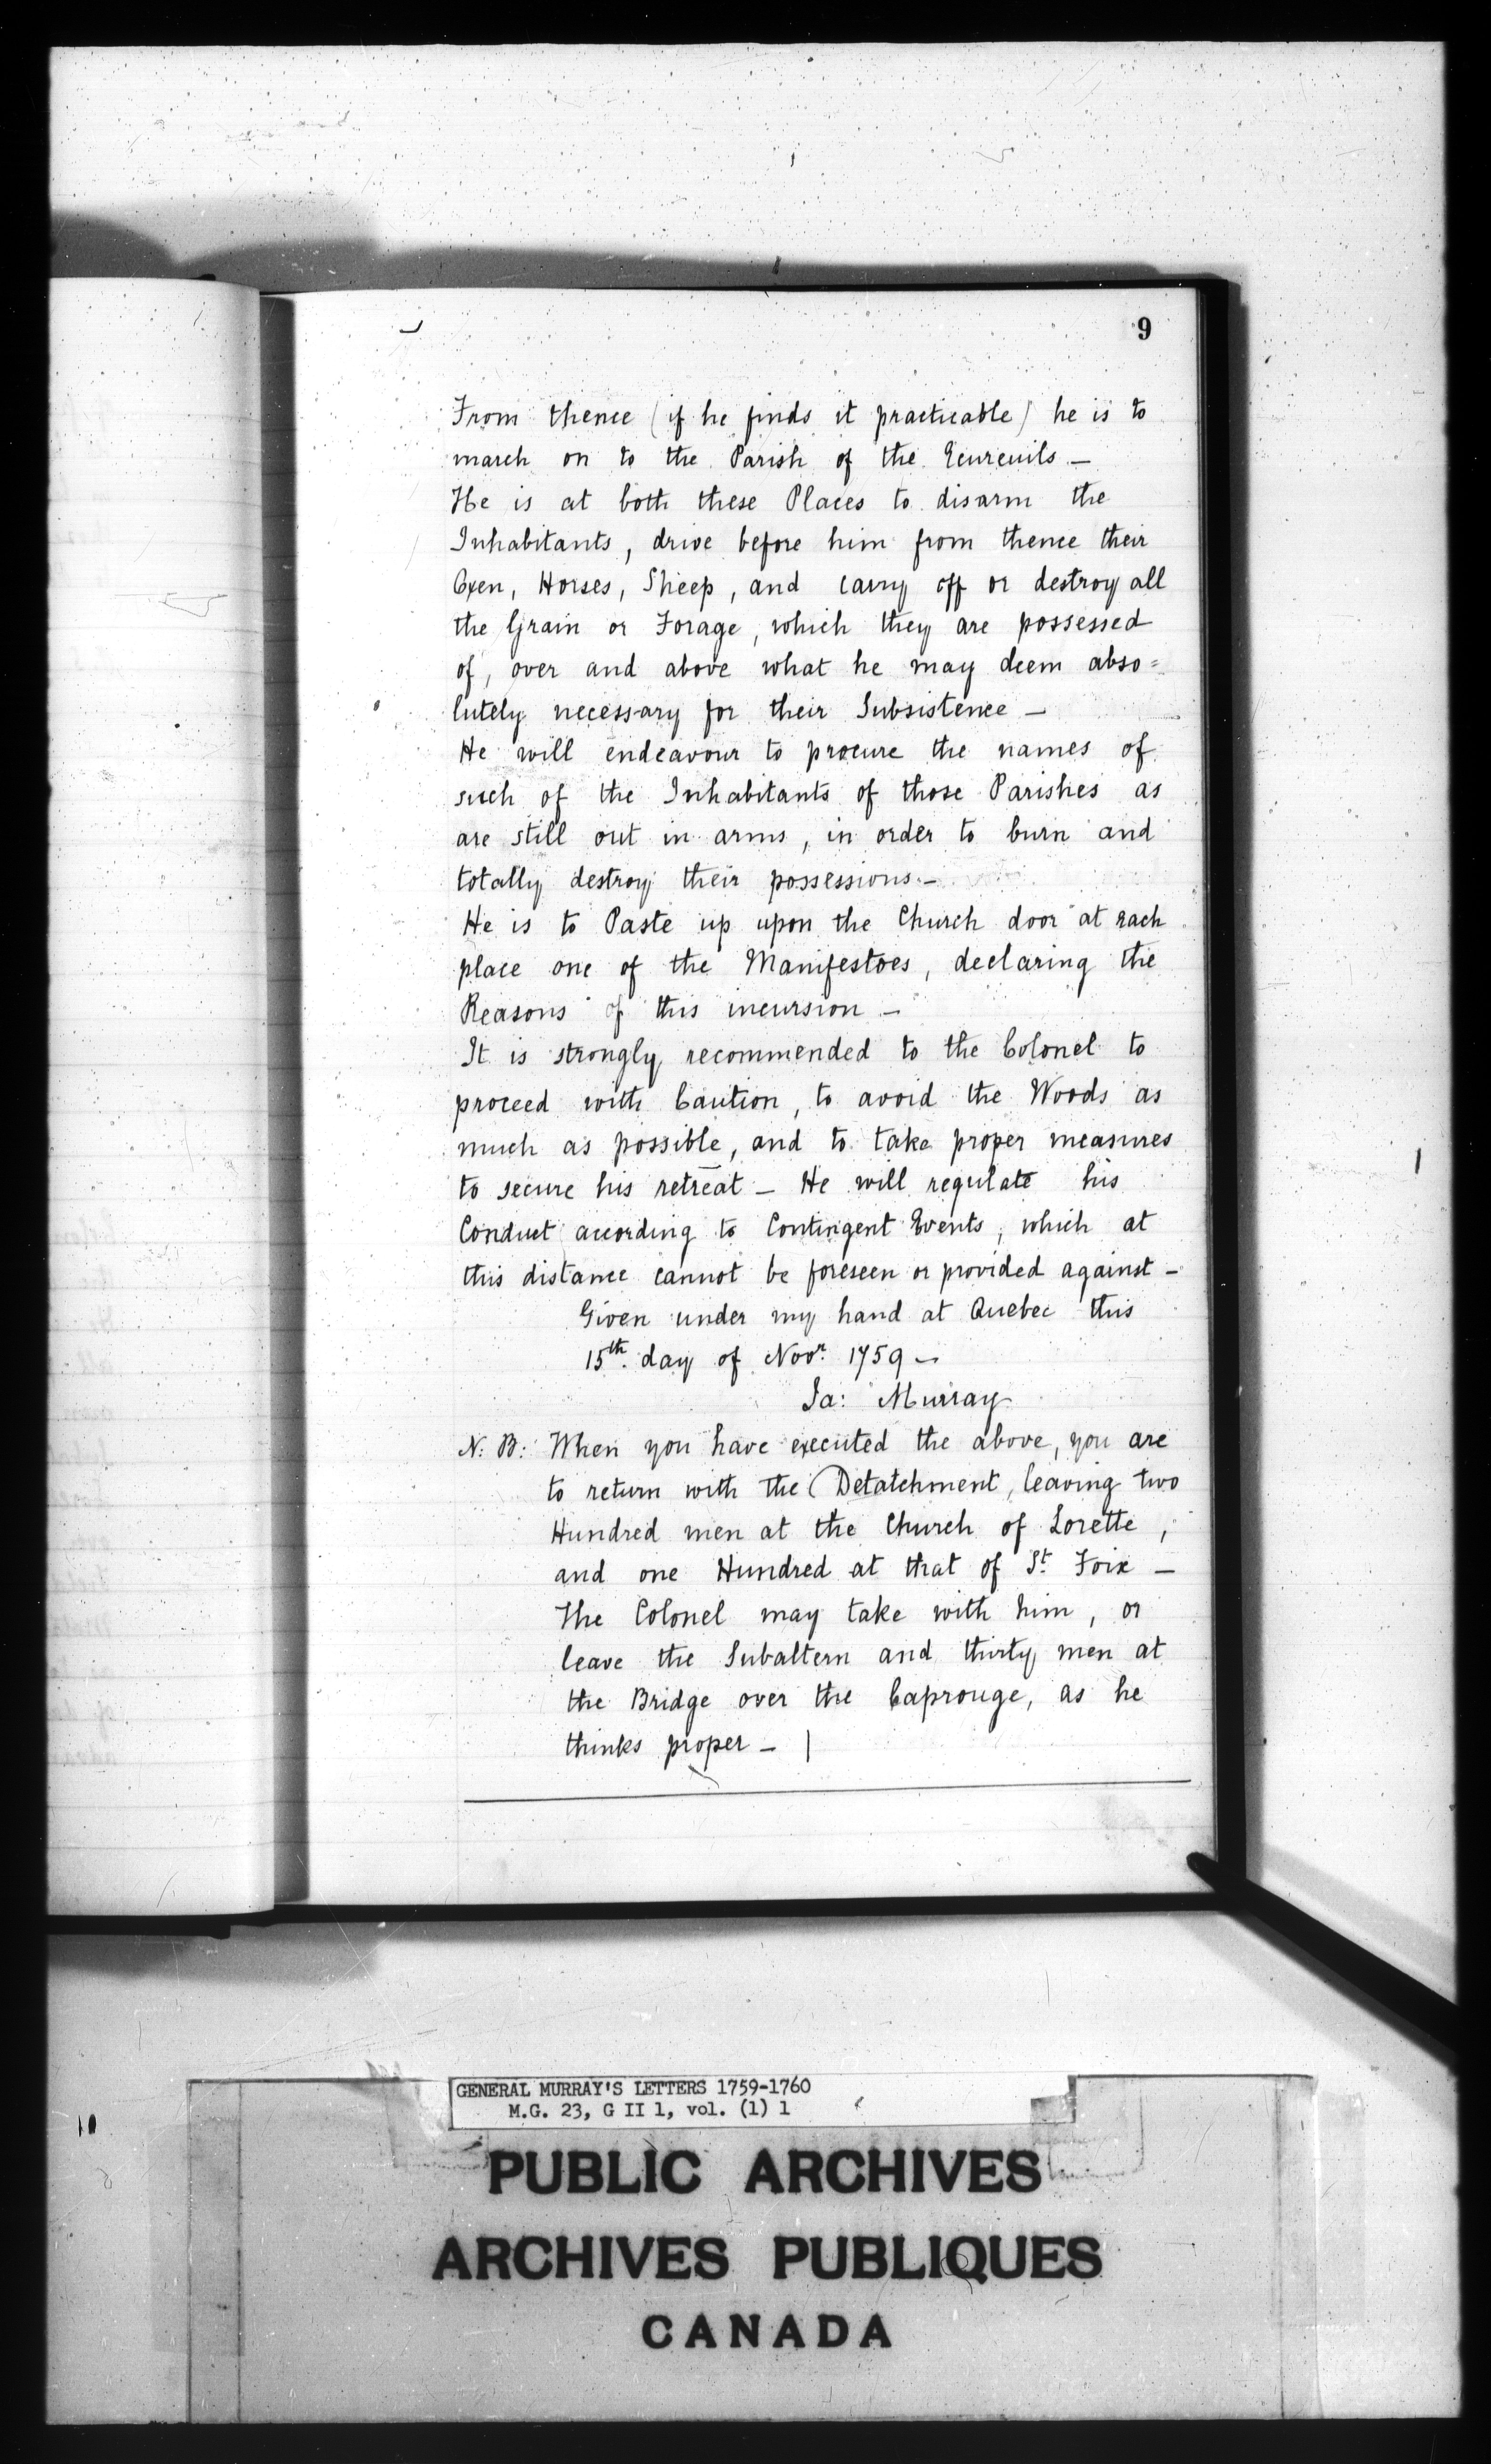 9
From thence (if he finds it practicable) he is to
march on to the Parish of the Ecureuils —
He is at both these Places to disarm the
Inhabitants, drive before him from thence their
Oxen, Horses, Sheep, and carry off or destroy all
the Grain or Forage, which they are possessed
of, over and above what he may deem abso=
lutely necessary for their Subsistence —
He will endeavour to procure the names of
such of the Inhabitants of those Parishes as
are still out in arms, in order to burn and
totally destroy their possessions. —
He is to Paste up upon the Church door at each
place one of the Manifestoes, declaring the
Reasons of this incursion —
It is strongly recommended to the Colonel to
proceed with Caution, to avoid the Woods as
much as possible, and to take proper measures
to secure his retreat — He will regulate his
Conduct according to Contingent Events, which at
this distance cannot be foreseen or provided against —
Given under my hand at Quebec this
15th. day of Novr. 1759 —
Ja: Murray
N: B: When you have executed the above, you are
to return with the Detatchment, leaving two
Hundred men at the Church of Lorette,
and one Hundred at that of St. Foix —
The Colonel may take with him, or
leave the Subaltern and thirty men at
the Bridge over the Caprouge, as he
thinks proper — |
GENERAL MURRAY'S LETTERS 1759-1760
M.G. 23, G II 1, vol. (1) 1
PUBLIC ARCHIVES
ARCHIVES PUBLIQUES
CANADA